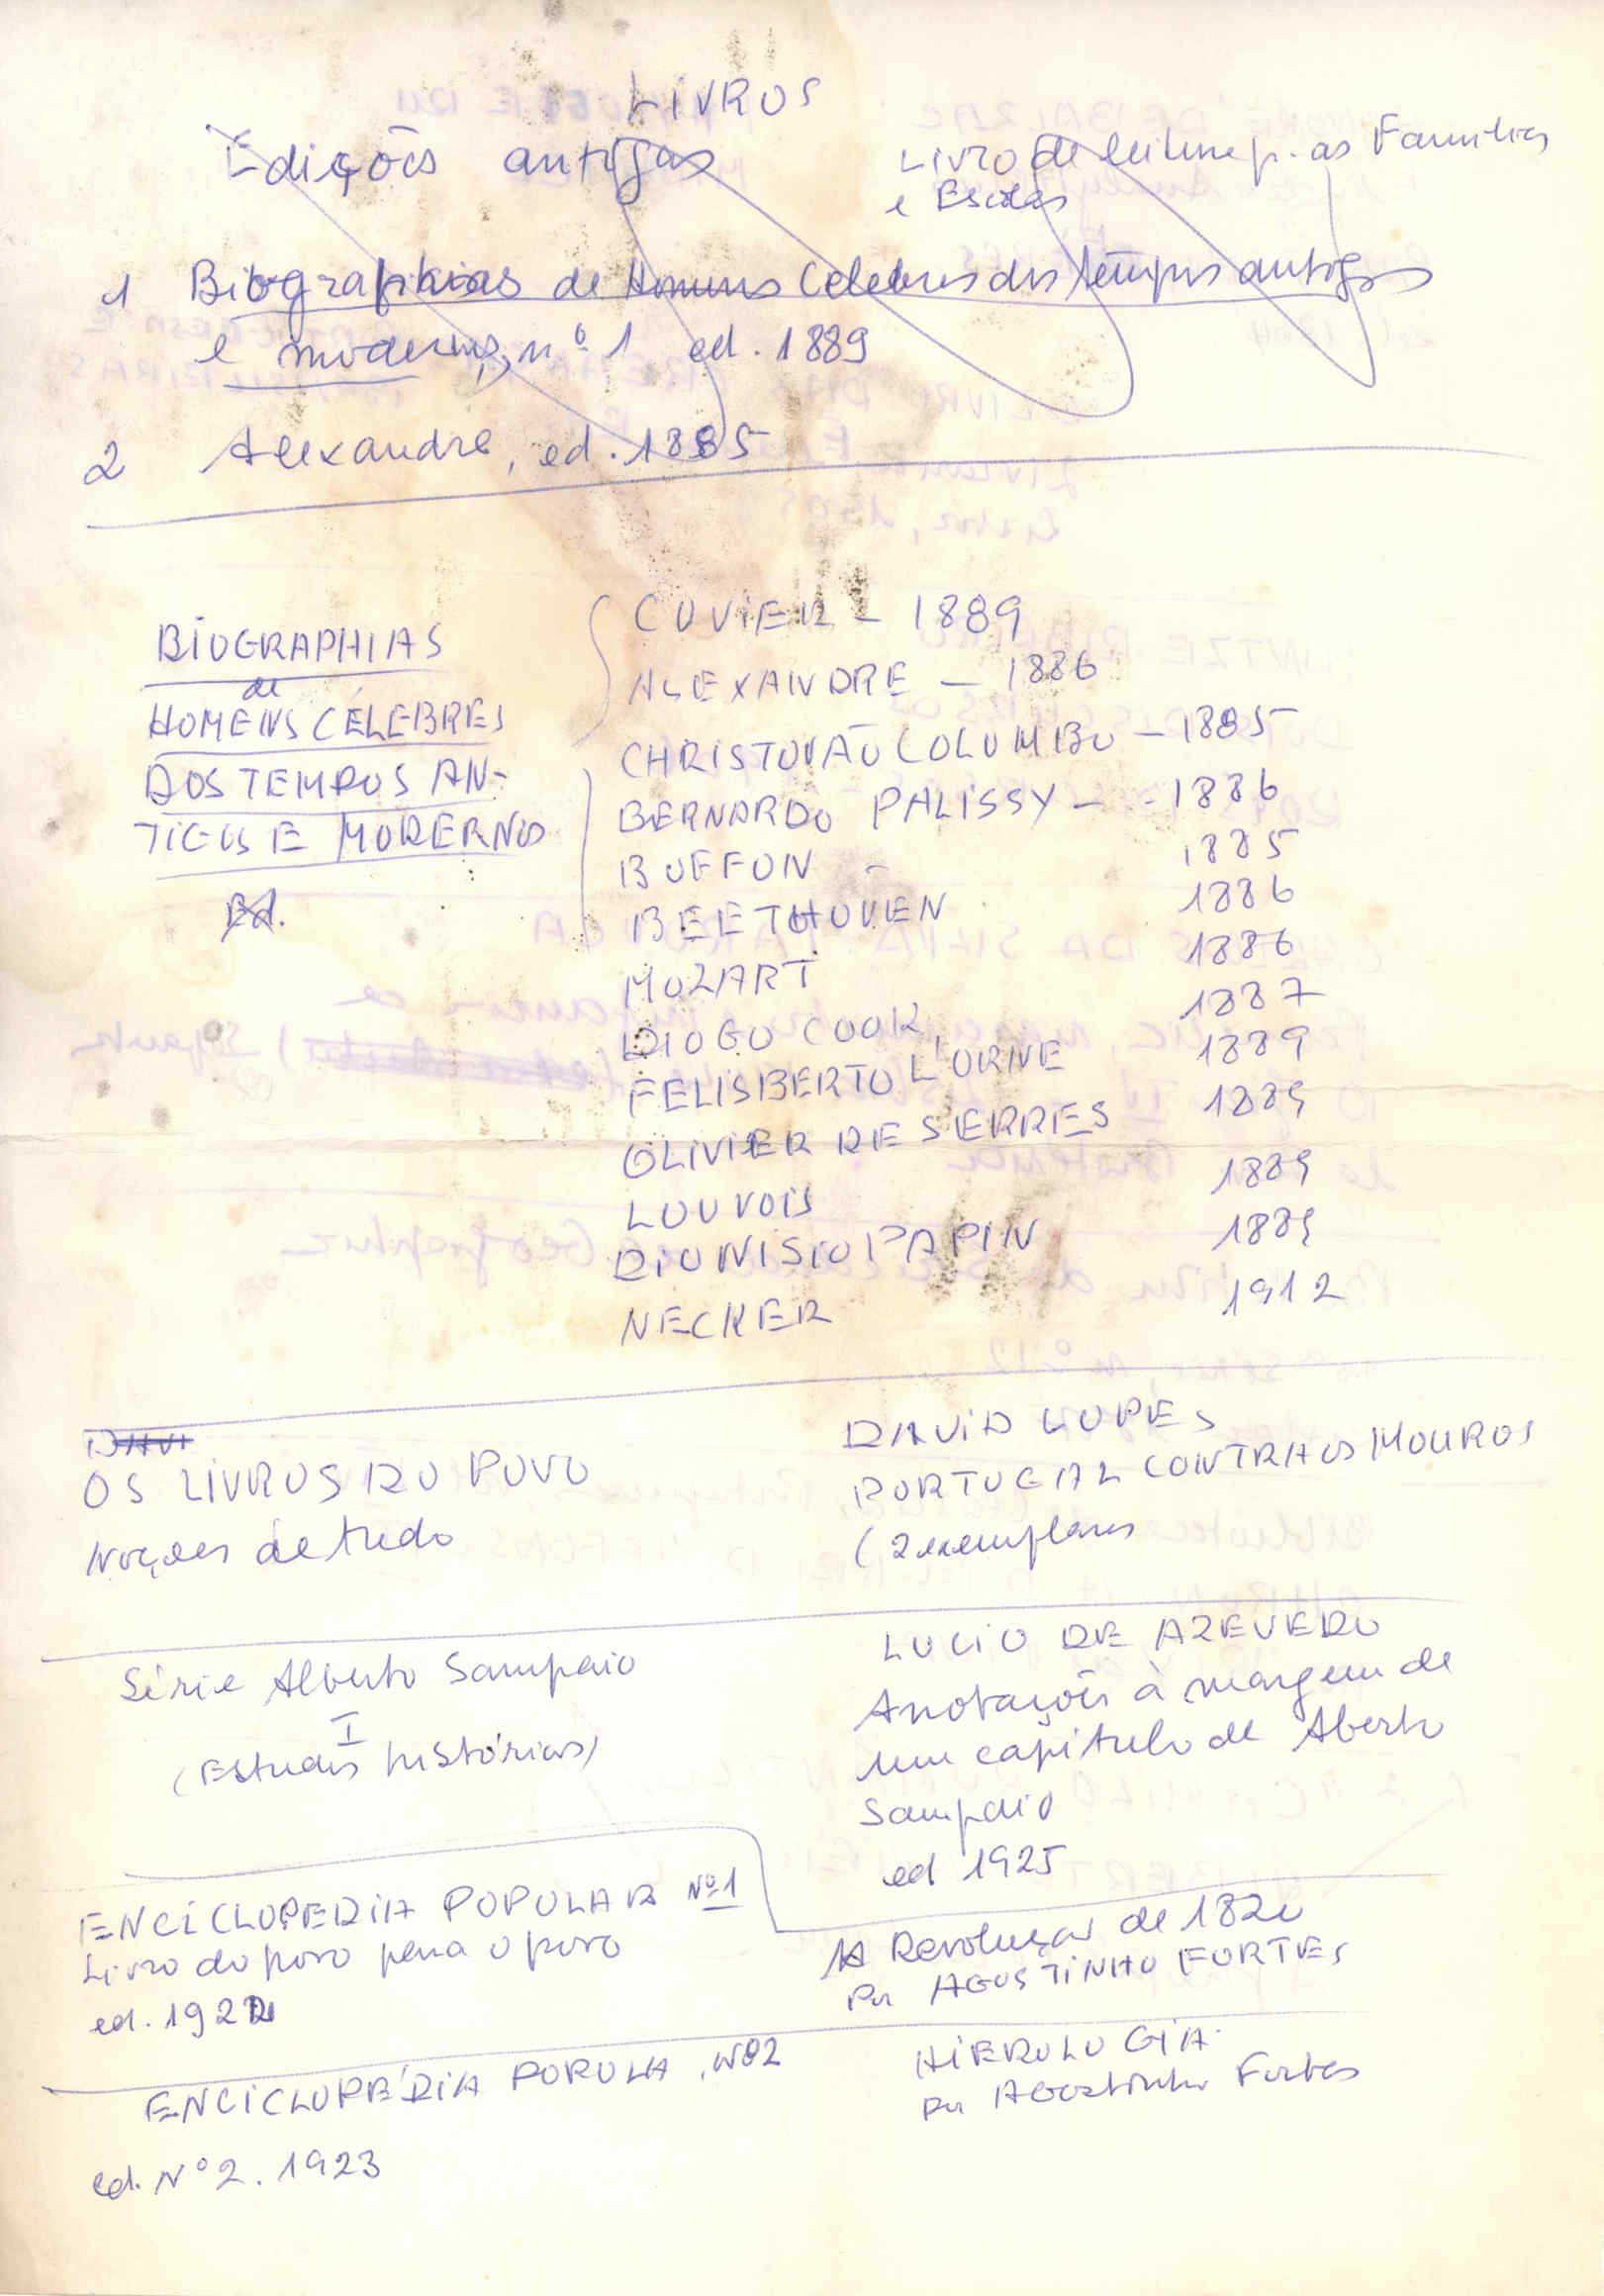 LIVROS
Edições antigas
Livro de leitura p. as Famílias
e Escolas
1 Biographias de Homens Celebres dos tempos antigos
e modernos, nº 1 ed. 1889
2 Alexandre, ed. 1885
BIOGRAPHIAS
de
HOMENS CÉLEBRES
DOS TEMPOS AN-
TIGOS E MODERNOS
Ed.
CUVIER - 1889
ALEXANDRE - 1886
CHRISTOVÃO COLUMBO - 1885
BERNARDO PALISSY - - 1886
BUFFON - 1885
BEETHOVEN 1886
MOZART 1886
DIOGO COOK 1887
FELISBERTO L'ORNE 1889
OLIVIER DE SERRES 1889
LOUVOIS 1889
DIONISIO PAPIN 1889
NECKER 1912
DAVI
OS LIVROS DO POVO
Noções de tudo
DAVID LOPES
PORTUGAL CONTRA OS MOUROS
(2 exemplares
Série Alberto Sampaio
I
(Estudos históricos)
LUCIO DE AZEVEDO
Anotações à margem de
um capítulo de Aberto
Sampaio
ed 1925
ENCICLOPEDIA POPULAR Nº 1
Livro do povo para o povo
ed. 1922
A Revolução de 1820
Por AGOSTINHO FORTES
ENCICLOPÉDIA POPULA, Nº 2
ed. Nº 2. 1923
HIEROLOGIA
por Agostinho Fortes